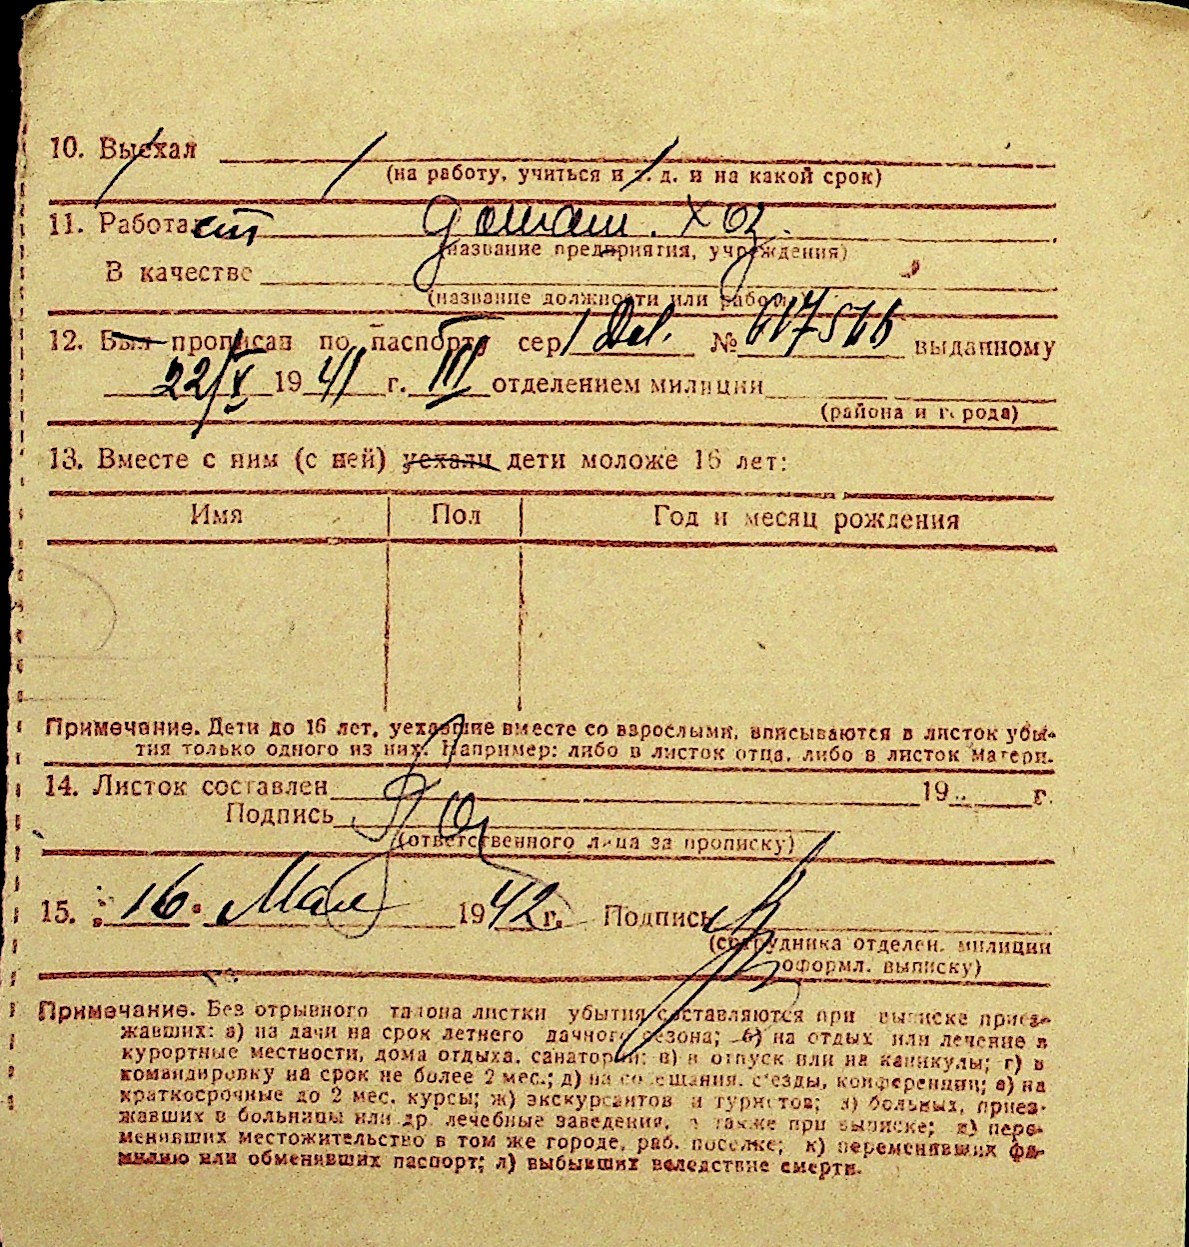 10. Выехал
(на работу, учиться и т. д. и на какой срок)
11. Работает домаш. хоз.
(название предприятия, учреждения)
В качестве
(название должности или работы)
12. Был прописан по паспорту сер № выданному
22/X 1941 г. III отделением милиции
(района и города)
13. Вместе с ним (с ней) уехали дети моложе 16 лет:
Имя Пол Год и месяц рождения
Примечание. Дети до 16 лет, уехавшие вместе со взрослыми, вписываются в листок убы-
тия только одного из них. Например: либо в листок отца, либо в листок матери.
14. Листок составлен 19 г.
Подпись
(ответственного лица за прописку)
15. "16" Мая 1942 г. Подпись
(сотрудника отделен. милиции
оформл. выписку)
Примечание. Без отрывного талона листки убытия составляются при выписке приез-
жавших: а) на дачи на срок летнего дачного сезона; б) на отдых или лечение в
курортные местности, дома отдыха, санатории; в) в отпуск или на каникулы; г) в
командировку на срок не более 2 мес.; д) на совещания, съезды, конференции; е) на
краткосрочные до 2 мес. курсы; ж) экскурсантов и туристов; з) больных, приез-
жавших в больницы или др. лечебные заведения, а также при выписке; и) пере-
менивших местожительство в том же городе, раб. поселке; к) переменивших фа-
милию или обменивших паспорт; л) выбывших вследствие смерти.